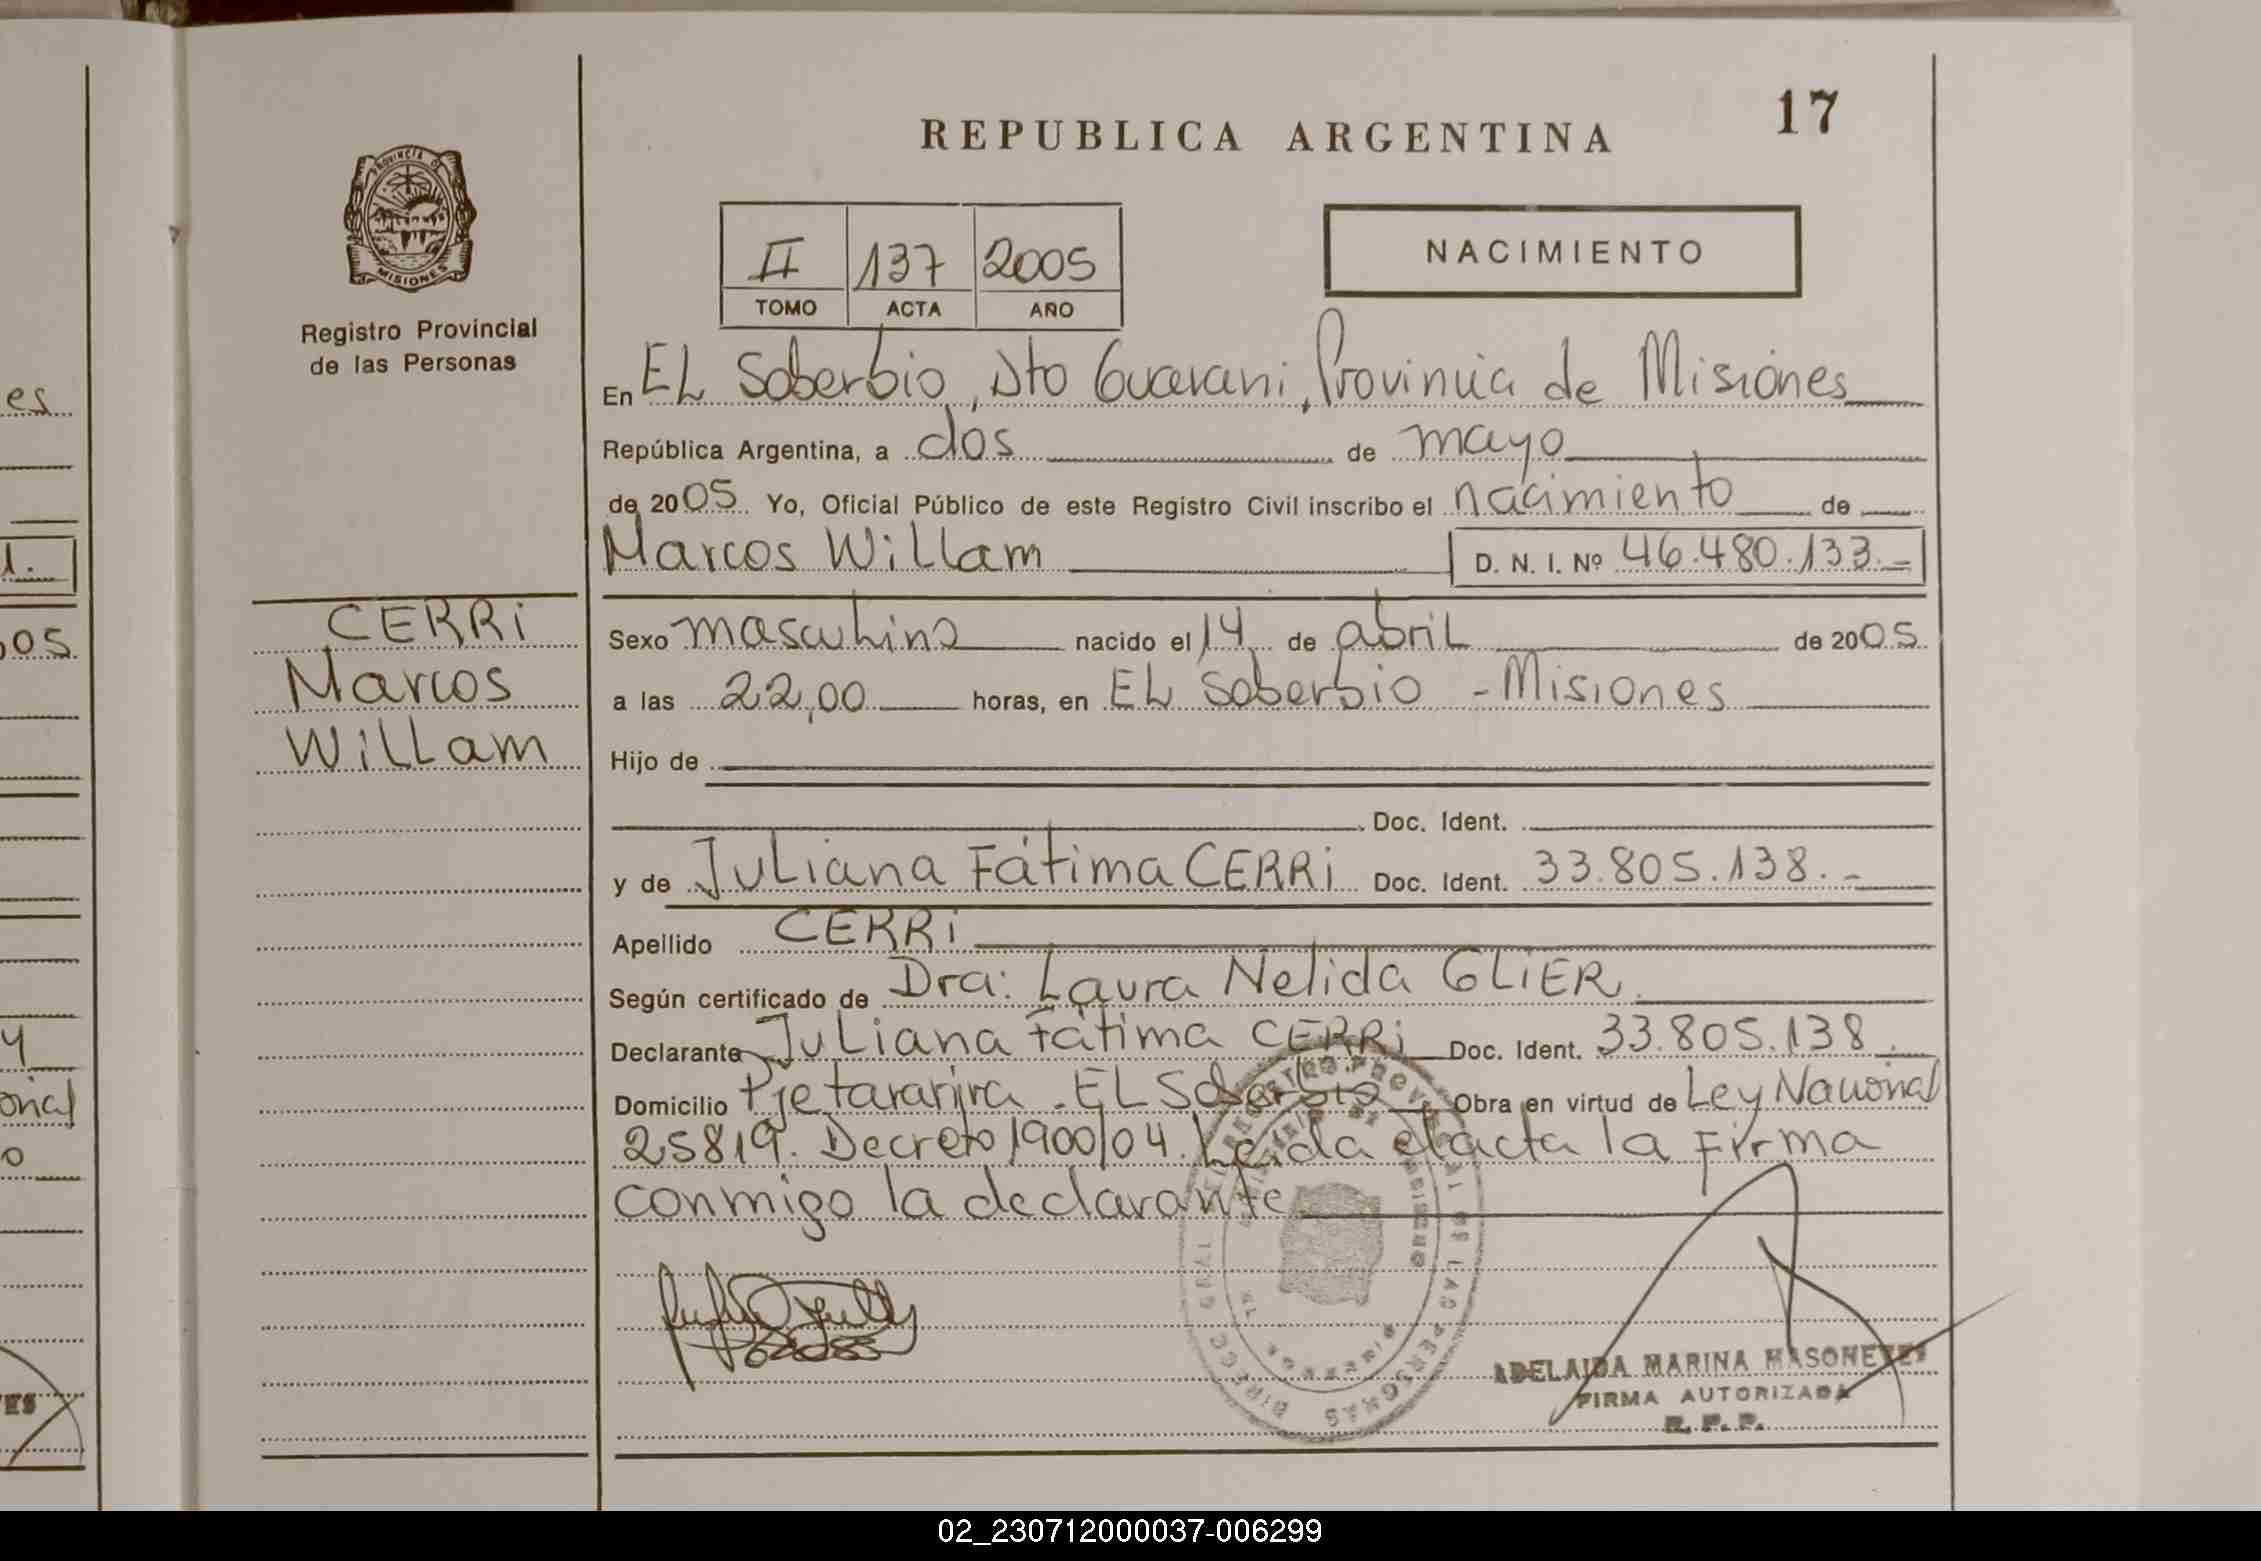 REPUBLICA ARGENTINA
17
PROVINCIA DE
MISIONES
Registro Provincial
de las Personas
II 137 2005
TOMO ACTA AÑO
NACIMIENTO
En EL Soberbio, Dto Guarani, Provincia de Misiones
República Argentina, a dos de mayo
de 2005 Yo, Oficial Público de este Registro Civil inscribo el nacimiento de
Marcos Willam D. N. I. Nº 46.480.133.-
CERRi
Marcos
Willam
Sexo masculino nacido el 14 de abril de 2005
a las 22,00 horas, en EL Soberbio - Misiones
Hijo de
Doc. Ident.
y de Juliana Fátima CERRi Doc. Ident. 33.805.138.-
Apellido CERRi
Según certificado de Dra: Laura Nelida GLiER
Declarante Juliana Fátima CERRi Doc. Ident. 33.805.138
Domicilio EL Soberbio Obra en virtud de Ley Nacional
25819. Decreto 1900/04. Leida el acta la Firma
conmigo la declarante
ADELAIDA MARINA
FIRMA AUTORIZADA
R. P. P.
es
1.
05
4
onal
o
ES
02_230712000037-006299